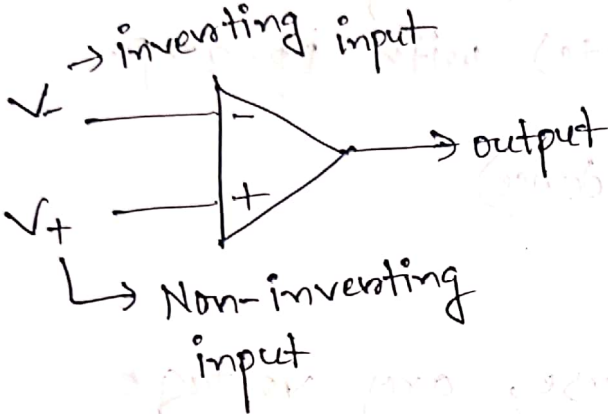 → inverting input
V-
-
→ output
V+
+
→ Non-inverting
input